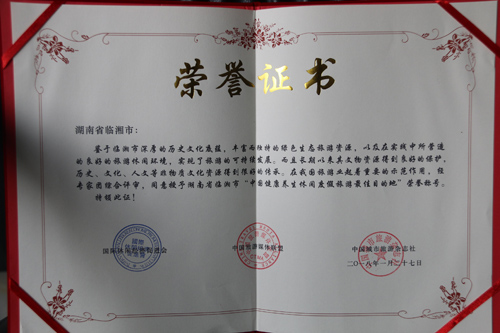 荣誉证书
湖南省临湘市：
鉴于临湘市深厚的历史文化底蕴，丰富而独特的绿色生态旅游资源，以及在实践中所营造
的良好的旅游休闲环境，实现了旅游的可持续发展。而且长期以来其文物资源得到良好的保护，
历史、文化、人文等非物质文化资源得到很好的传承。在我国旅游业起着重要的示范作用，经
专家团综合评审，同意授予湖南省临湘市“中国健康养生休闲度假旅游最佳目的地”荣誉称号。
特颁此证！
中国旅游媒体联盟 中国城市旅游杂志社
二〇一八年一月二十七日